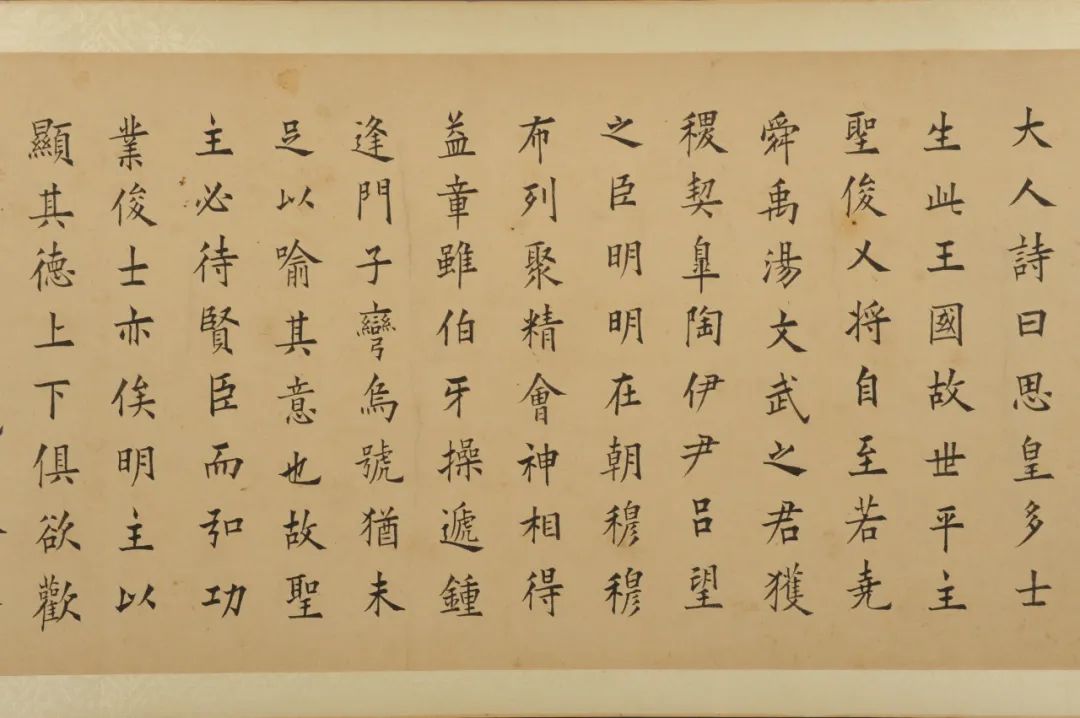 大人詩曰思皇多士
生此王國故世平主
聖俊乂将自至若堯
舜禹湯文武之君獲
稷契臯陶伊尹呂望
之臣明明在朝穆穆
布列聚精會神相得
益章雖伯牙操遞鍾
逢門子彎烏號猶未
足以喻其意也故聖
主必待賢臣而弘功
業俊士亦俟明主以
顯其德上下俱欲歡